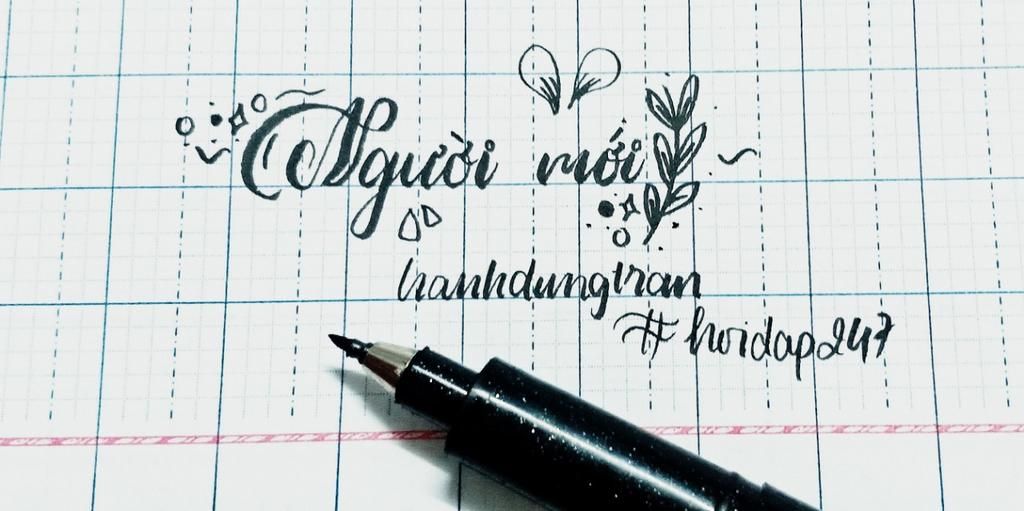 Người mới
hanhdungtran
#hoidap247